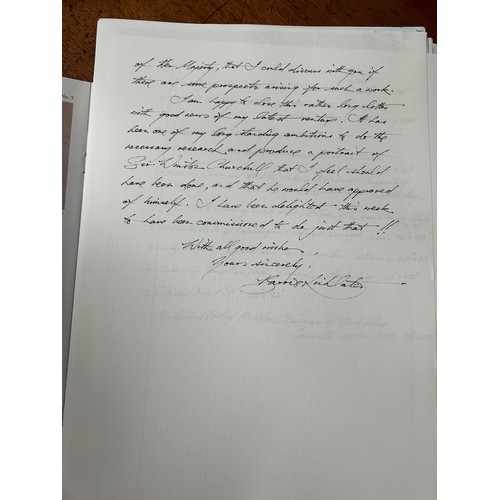 of Her Majesty, that I could discuss with you if
there are some prospects arising for such a work.
I am happy to close this rather long letter
with good news of my latest venture. It has
been one of my long standing ambitions to do the
necessary research and produce a portrait of
Sir Winston Churchill that I feel should
have been done, and that he would have approved
of himself. I have been delighted this week
to have been commissioned to do just that!!
With all good wishes,
Yours sincerely,
No. 7